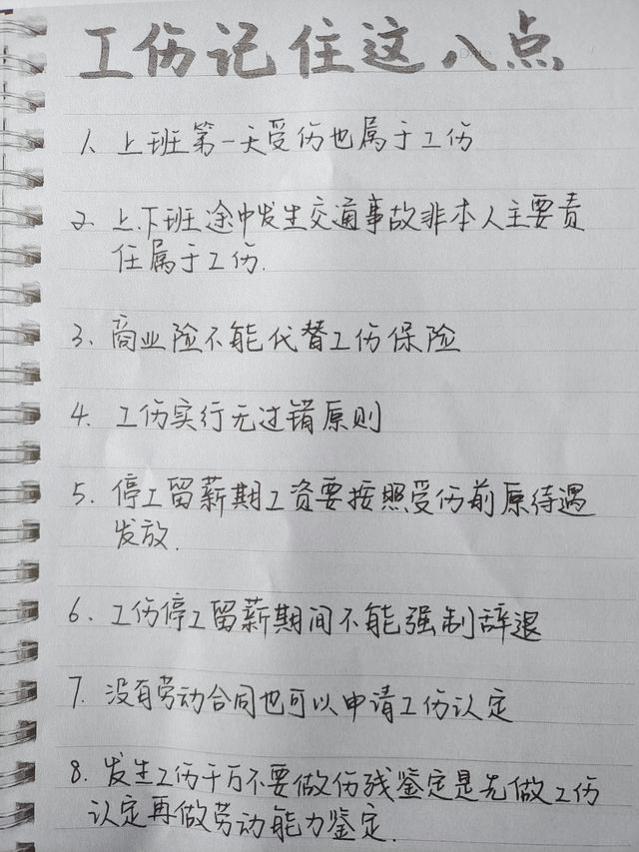 工伤记住这八点
1、上班第一天受伤也属于工伤
2、上、下班途中发生交通事故非本人主要责
任属于工伤.
3、商业险不能代替工伤保险
4、工伤实行无过错原则
5、停工留薪期工资要按照受伤前原待遇
发放.
6、工伤停工留薪期间不能强制辞退
7、没有劳动合同也可以申请工伤认定
8、发生工伤千万不要做伤残鉴定是先做工伤
认定再做劳动能力鉴定.